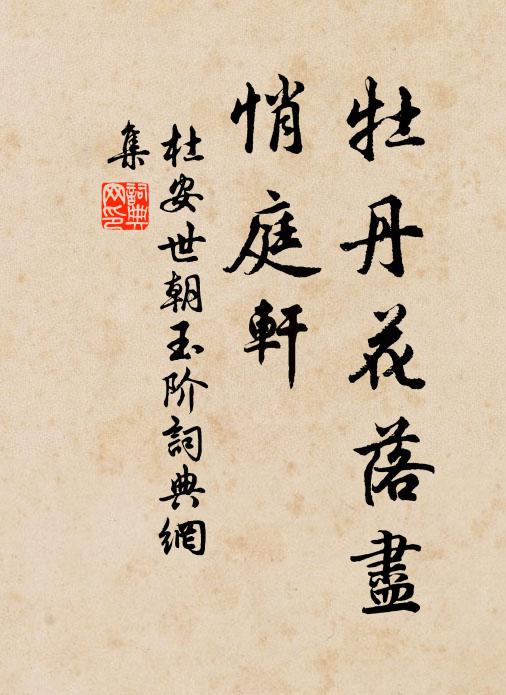 牡丹花落盡
悄庭軒
杜安世朝玉阶詞典網
集
詞典網印